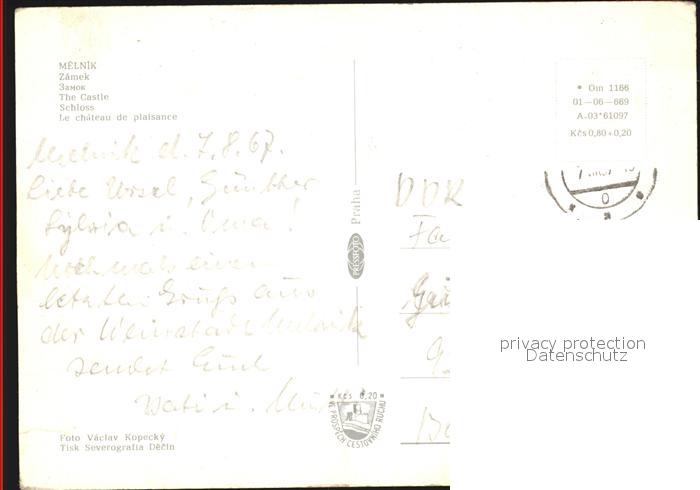 MĚLNÍK
Zámek
Замок
The Castle
Schloss
Le château de plaisance
Melnik d. 7.8.67.
Liebe Ursel, Günther
Sylvia u. Oma!
Nochmals einen
letzten Gruß aus
der Weinstadt Melnik
sendet Euch
Vati u.
Foto Václav Kopecký
Tisk Severografia Děčín
Praha
PRESSFOTO
Kčs 0,20
VE PROSPĚCH CESTOVNÍHO RUCHU
• Om 1166
01—06—669
A-03*61097
Kčs 0,80+0,20
DDR
privacy protection
Datenschutz